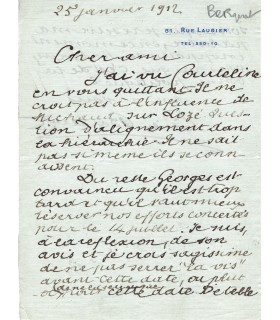 25 janvier 1912
Bergerat
67, RUE LAUGIER
Cher ami
J'ai vu Courteline
en vous quittant. Il ne
croit pas à l'influence de
sur Lozé
d'alignement dans
la hiérarchie. Il ne sait
pas si même ils se con-
naissent.
Du reste Georges est
convaincu qu'il est trop
tard et qu'il vaut mieux
réserver nos efforts concertés
pour le 14 juillet. Je suis,
à la réflexion, de son
avis et je crois sagissime
de ne pas serrer "la vis"
avant cette date, ou plut
cette date